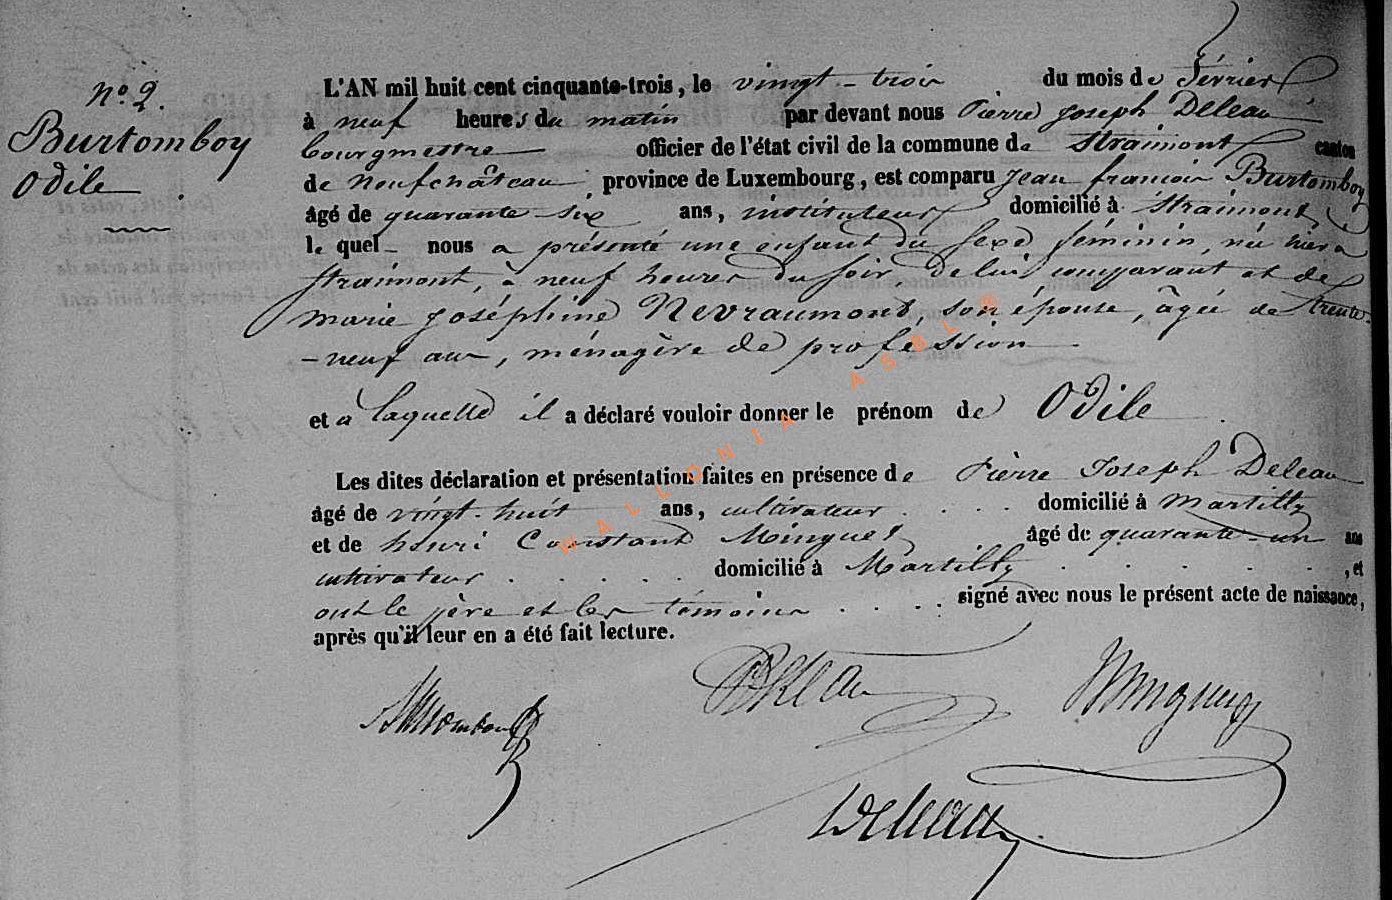 N° 2.
Burtomboy
Odile
L'AN mil huit cent cinquante-trois, le vingt-trois du mois de février
à neuf heures du matin par devant nous Pierre Joseph Deleau
bourgmestre officier de l'état civil de la commune de Straimont canton
de Neufchâteau, province de Luxembourg, est comparu Jean françois Burtomboy
âgé de quarante-six ans, instituteur domicilié à Straimont,
lequel nous a présenté une enfant du sexe féminin, née hier à
straimont, à neuf heures du soir de lui comparant et de
marie joséphine Nevraumont, son épouse, âgée de trente-
-neuf ans, ménagère de profession
et à laquelle il a déclaré vouloir donner le prénom de Odile
Les dites déclaration et présentation faites en présence de Pierre Joseph Deleau
âgé de vingt-huit ans, cultivateur domicilié à Martilly
et de henri Constant Minguet âgé de quarante-un ans
cultivateur domicilié à Martilly, et
ont le père et les témoins signé avec nous le présent acte de naissance,
après qu'il leur en a été fait lecture.
Burtomboy Deleau Minguet
Deleau
WALLONIA ASBL ®